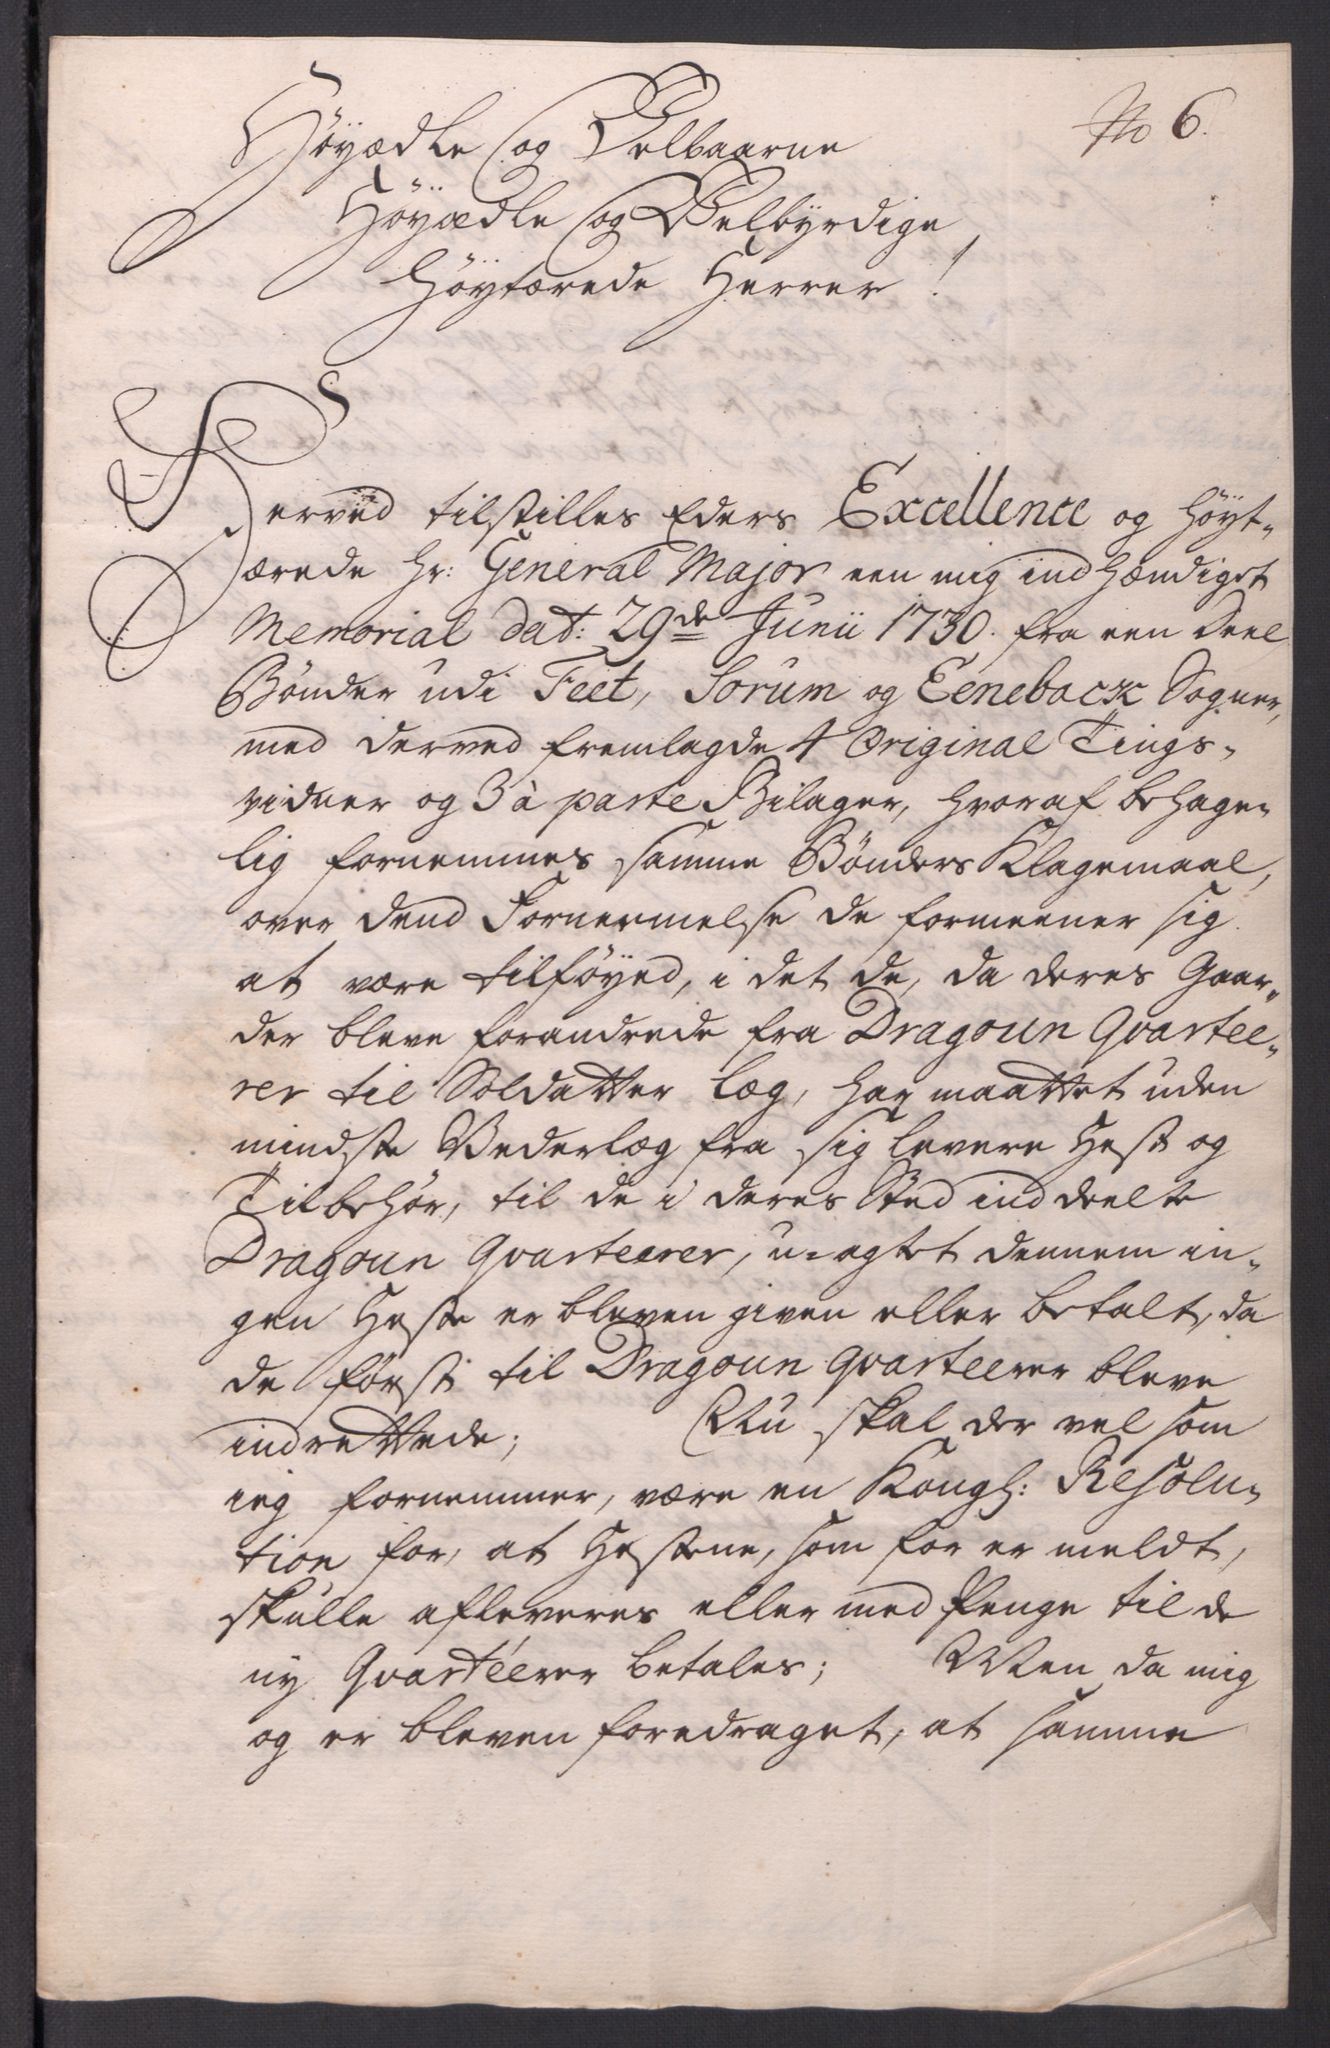 No 6.
Höyædle og Velbaarne
Höyædle og Velbyrdige
Höytærede Herrer!
Herved tilstilles Eders Excellence og Höyt-
ærede Hr: General Major een mig indhændiget
Memorial dat: 29de Junii 1730. fra een Deel
Bönder udi Feet, Sorum og Eeneback Sogner,
med derved fremlagde 4 Original Tings-
vidner og 3 à parte Bilager, hvoraf behage-
lig fornemmes samme Bönders Klagemaal,
over dend Fornermelse de formeener sig
at være tilföyed, i det de, da deres Gaar-
der bleve forandrede fra Dragoun Qvartee-
rer til Soldatter Læg, har maattet uden
mindste Vederlag fra sig levere Hest og
Tilbehör, til de i deres Sted inddeelte
Dragoun Qvarteerer, u-agtet dennem in-
gen Heste er bleven given eller betalt, da
de först til Dragoun Qvarteerer bleve
indrettede; Nu skal der vel som
jeg fornemmer, være en Kongl: Resolu-
tion for, at Hestene, som for er meldt,
skulle afleveres eller med Penge til de
ny Qvarteerer betales; Men da mig
og er bleven foredraget, at samme